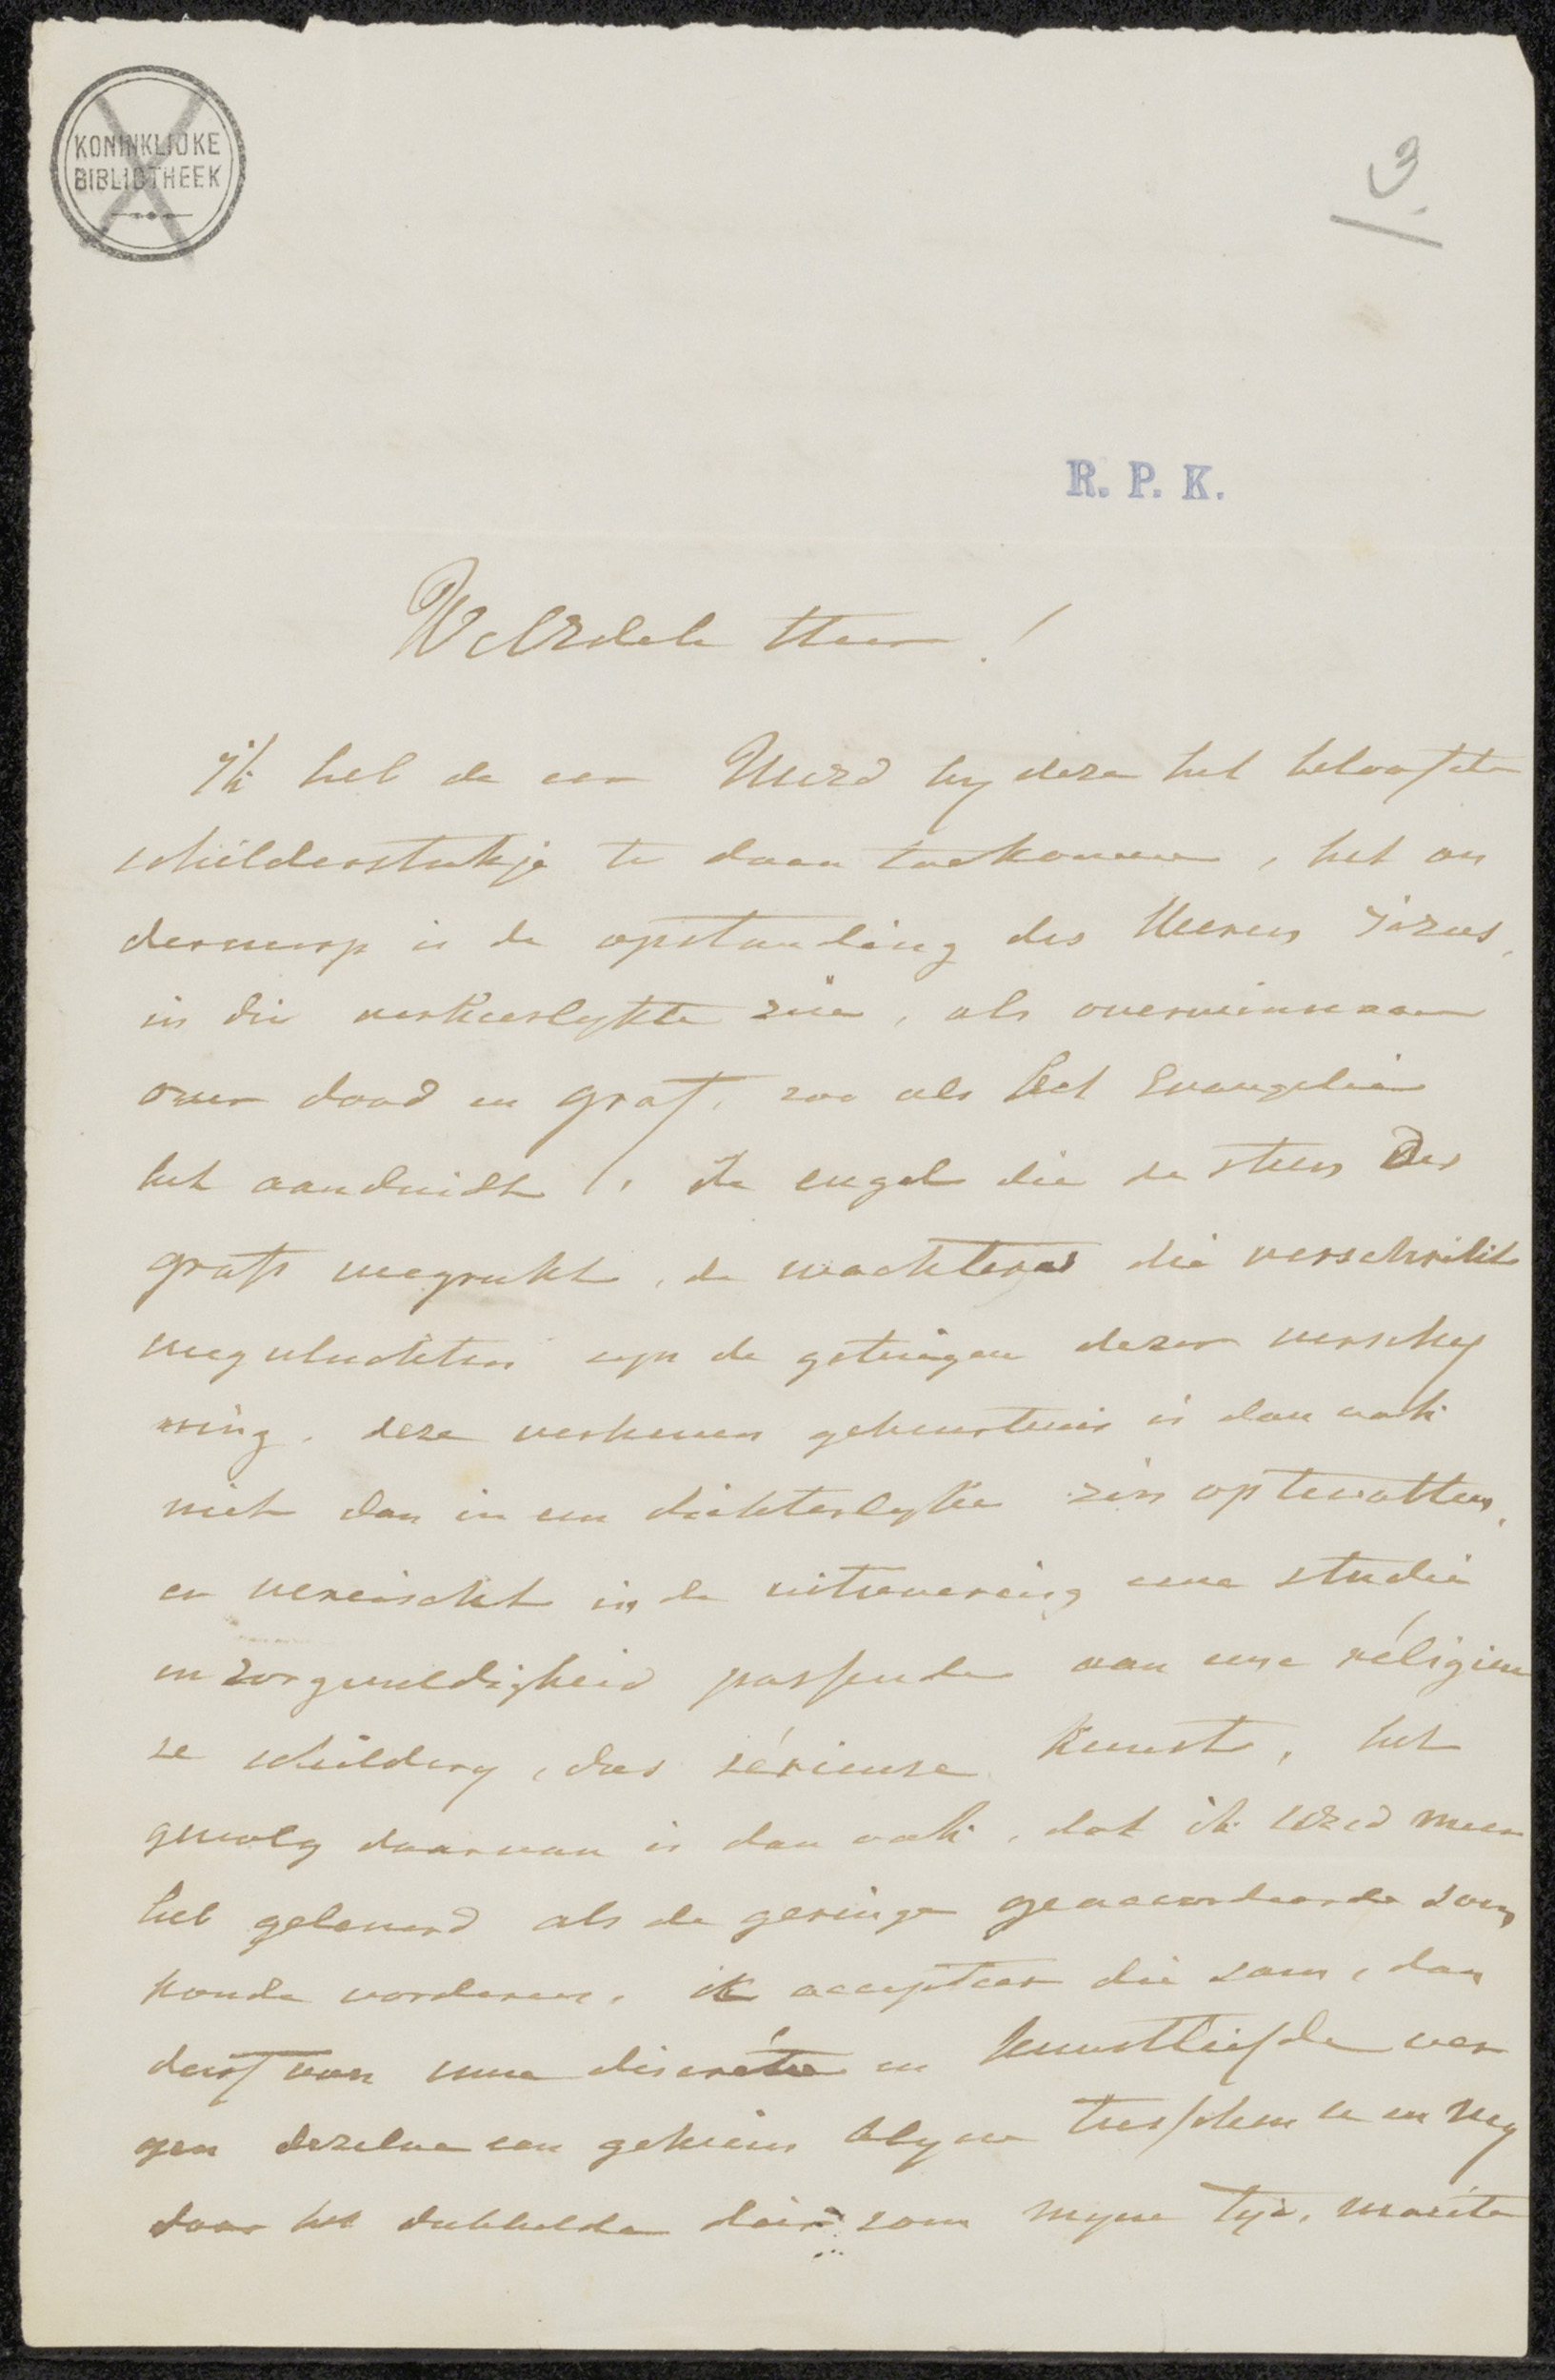 KONINKLIJKE
BIBLIOTHEEK
3.
R. P. K.
WelEdele Heer !
Ik heb de eer UwEd by deze het beloofde
schilderstukje te doen toekomen, het on
derwerp is de opstanding des Heeren Jezus,
in die verheerlykte zin, als overwinnaar
over dood en graf, zoo als het Evangelie
het aanduidt, de engel die de steen des
grafs wegrukt, de wachters die verschrikt
wegvluchten zyn de getuigen dezer verschy
ning. deze verheven gebeurtenis is dan ook
niet dan in een dichterlyke zin optevatten,
en vereischt in de uitvoering eene studie
en zorgvuldigheid passende aan eene réligieu
ze schildery, dus sérieuse Kunst, het
gevolg daarvan is dan ook, dat ik UEd meer
heb geleverd als de geringe geaccordeerde som
konde vorderen. ik accepteer die som, dan
derf van uwe discrétie en Kunstliefde ver
gen dezelve een geheim blyve tusschen u en my
daar het dubbelde dier som myne tyd, moeite